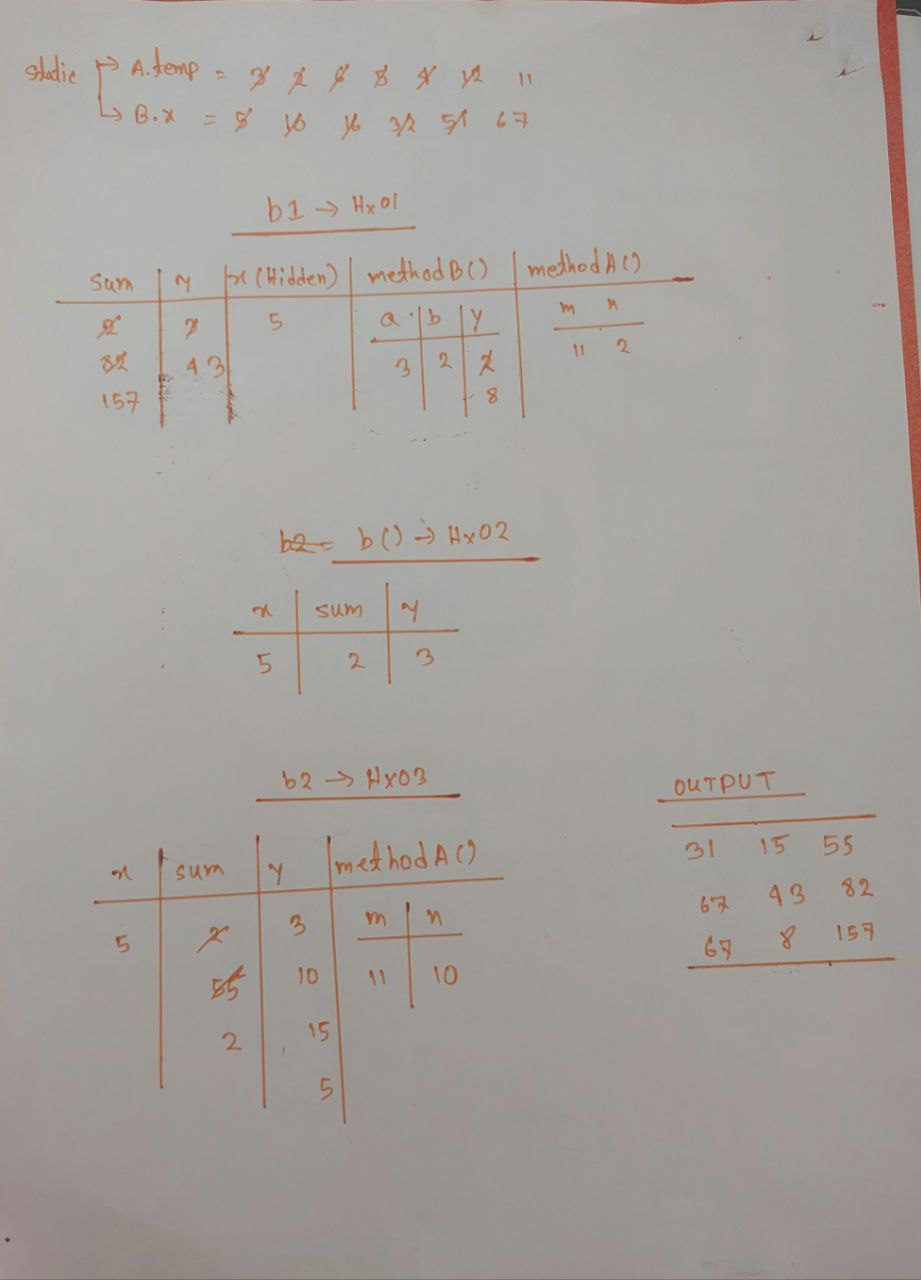 Static → A.temp = 3 2 6 8 4 12 11
→ B.x = 5 10 16 32 51 67
b1 → Hx01
sum y x (Hidden) methodB() methodA()
2 3 5 a b y m n
82 43 3 2 2 11 2
157 8
b2 = b() → Hx02
x sum y
5 2 3
b2 → Hx03
x sum y methodA()
5 2 3 m n
55 10 11 10
2 15
5
OUTPUT
31 15 55
67 43 82
67 8 157